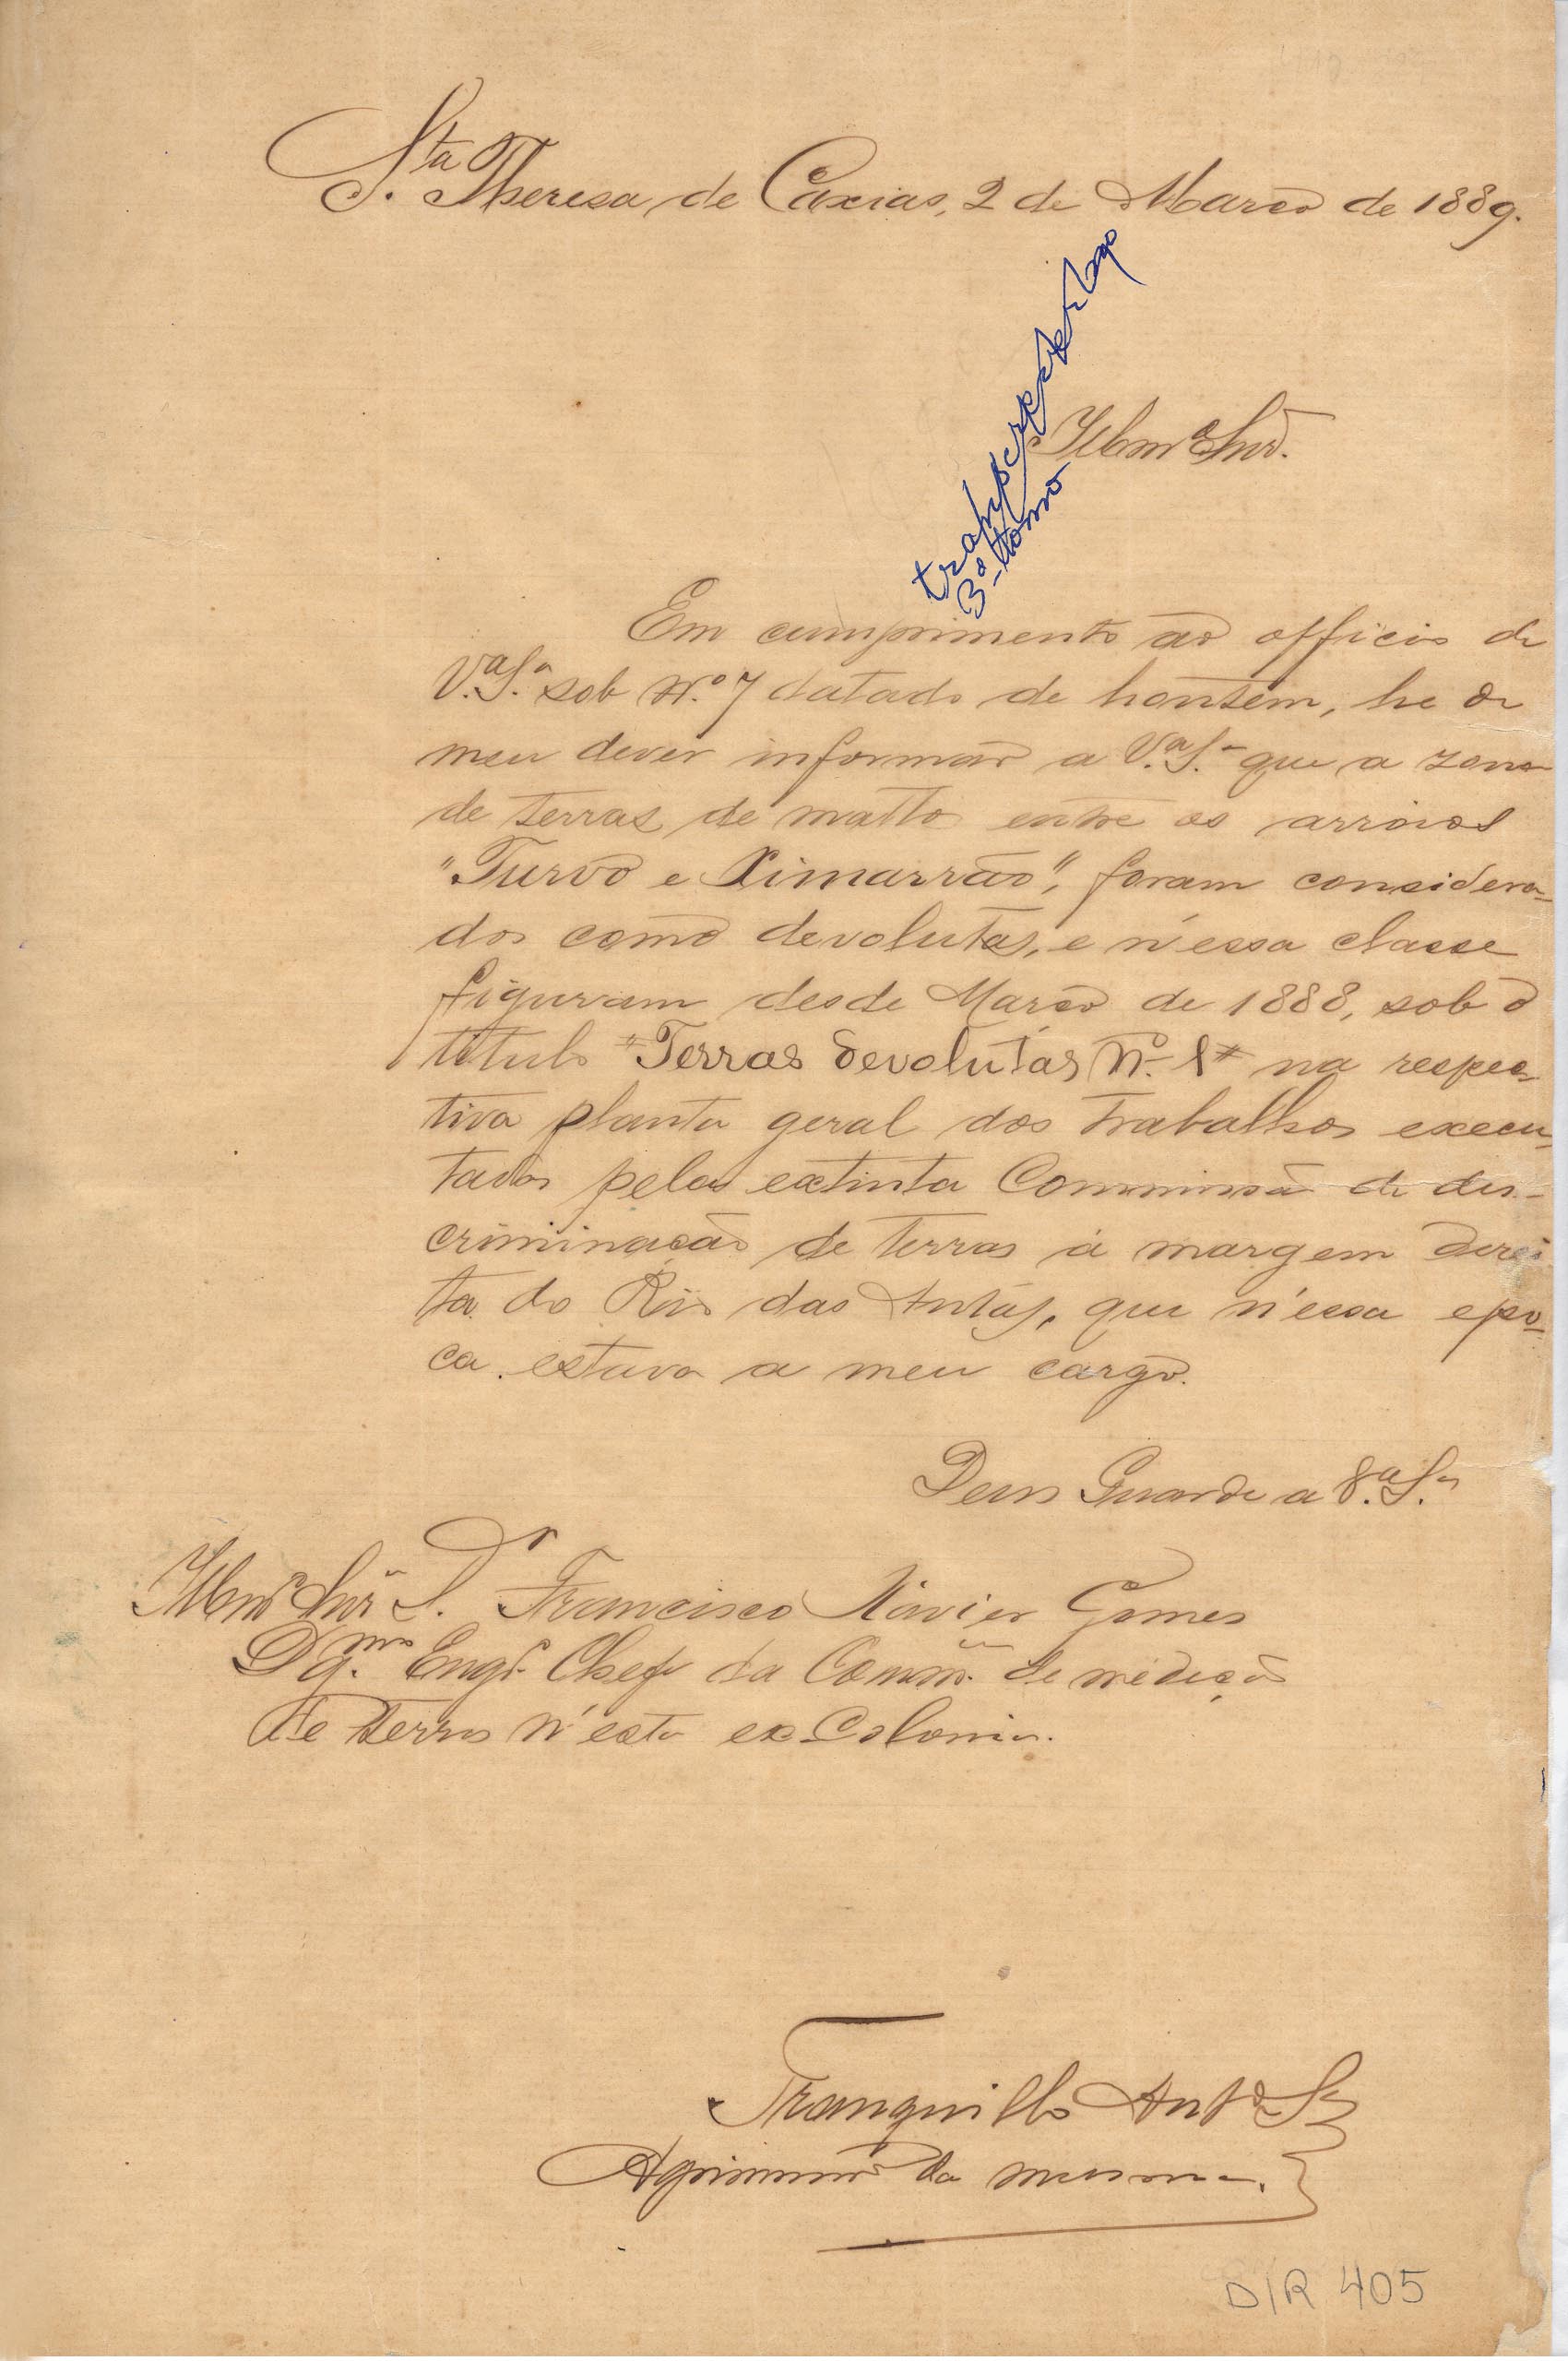 S.ta Theresa de Caxias, 2 de Março de 1889.
Illmo Snr.
3º tomo
Em cumprimento ao officio de
V.ª S.ª sob N.º 7 datado de hontem, he de
meu dever informar a V.ª S.ª que a zona
de terras de matto entre os arroios
"Turvo e Ximarrão", foram considera-
dos como devolutas, e n'essa classe
figuram desde Março de 1888, sob o
titulo "Terras devolutas Nº 1" na respec-
tiva planta geral dos trabalhos execu-
tados pela extinta Commissão de dis-
criminação de terras á margem direi
ta do Rio das Antas, que n'essa epo-
ca estava a meu cargo.
Deus Guarde a V.ª S.ª
Illmo Snr D.r Francisco Xavier Gomes
Dg.mo Engr. Chefe da Comm.ão de medição
de terras n'esta ex-Colonia.
Tranquillo Antº
Agrimensor da mesma.
D/R 405